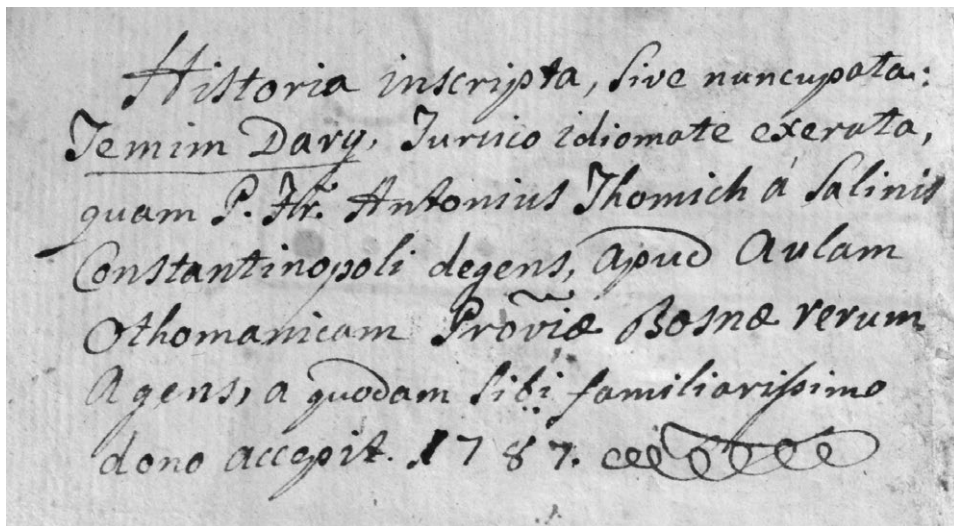 Historia inscripta, sive nuncupata:
Temim Dary, Turcico idiomate exerata,
quam P. Fr. Antonius Thomich á Salinis
Constantinopoli degens, apud Aulam
Othomanicam Provi͠æ Bosnæ rerum
Agens, a quodam sibi familiarissimo
dono accepit. 1787.